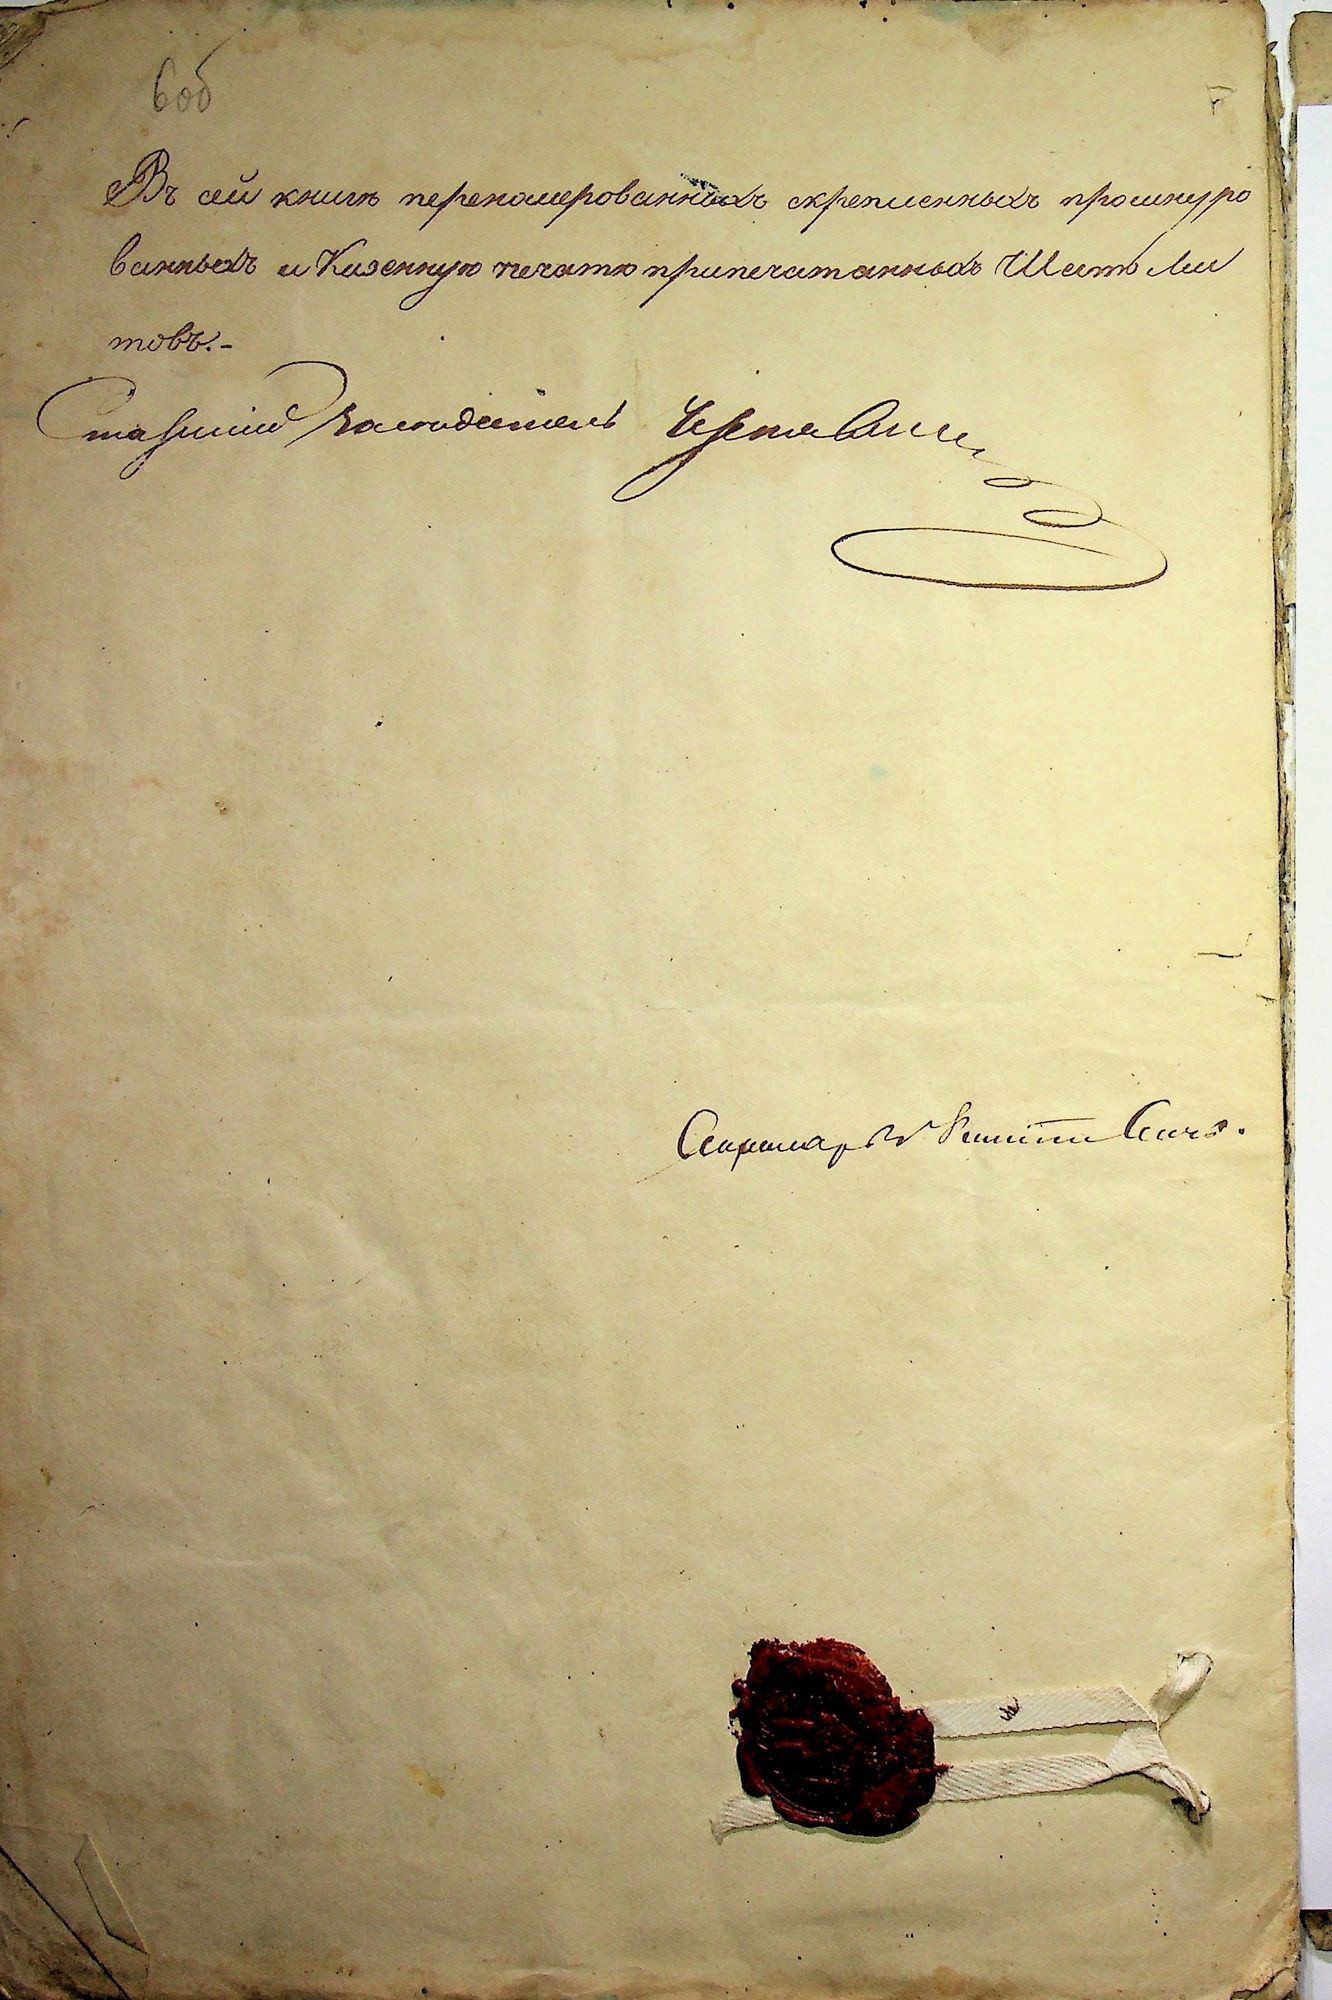 6об
Въ сей книгѣ перенумерованныхъ скрепленныхъ прошнуро
ванныхъ и Казенную печатю припечатанныхъ Шесть Лис
товъ.-
Старший Заседатель
Секретарь